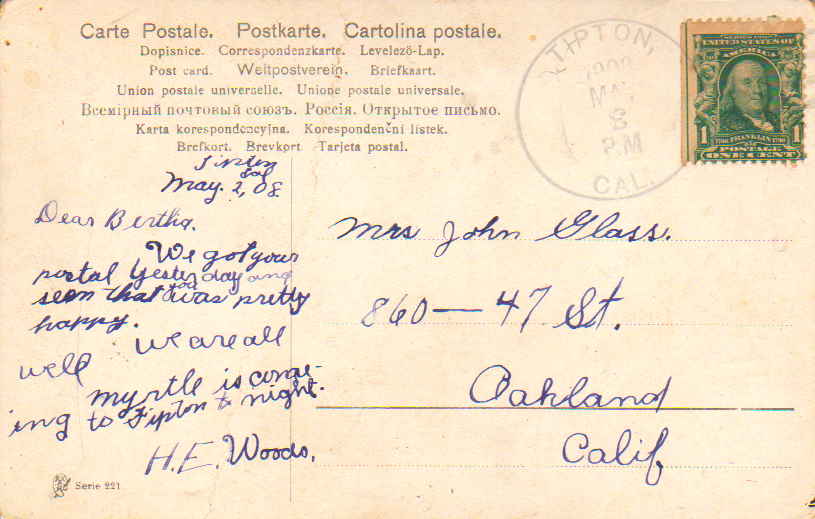 Carte Postale. Postkarte. Cartolina postale.
Dopisnice. Correspondenzkarte. Levelező-Lap.
Post card. Weltpostverein. Briefkaart.
Union postale universelle. Unione postale universale.
Всемірный почтовый союзъ. Россія. Открытое письмо.
Karta korespondencyjna. Korespondenční listek.
Brefkort. Brevkort. Tarjeta postal.
TIPTON,
1908
MAY
8
P.M
CAL.
UNITED STATES OF
AMERICA
1 1
FRANKLIN
POSTAGE
ONE CENT
Tipton
Cal
May. 2, 08.
Dear Bertha.
We got your
postal yesterday and
seen that you was pretty
happy.
we are all
well
myrtle is come-
ing to Tipton to night.
H.E. Woods.
Mrs John Glass.
860 — 47 St.
Oakland
Calif
Serie 221